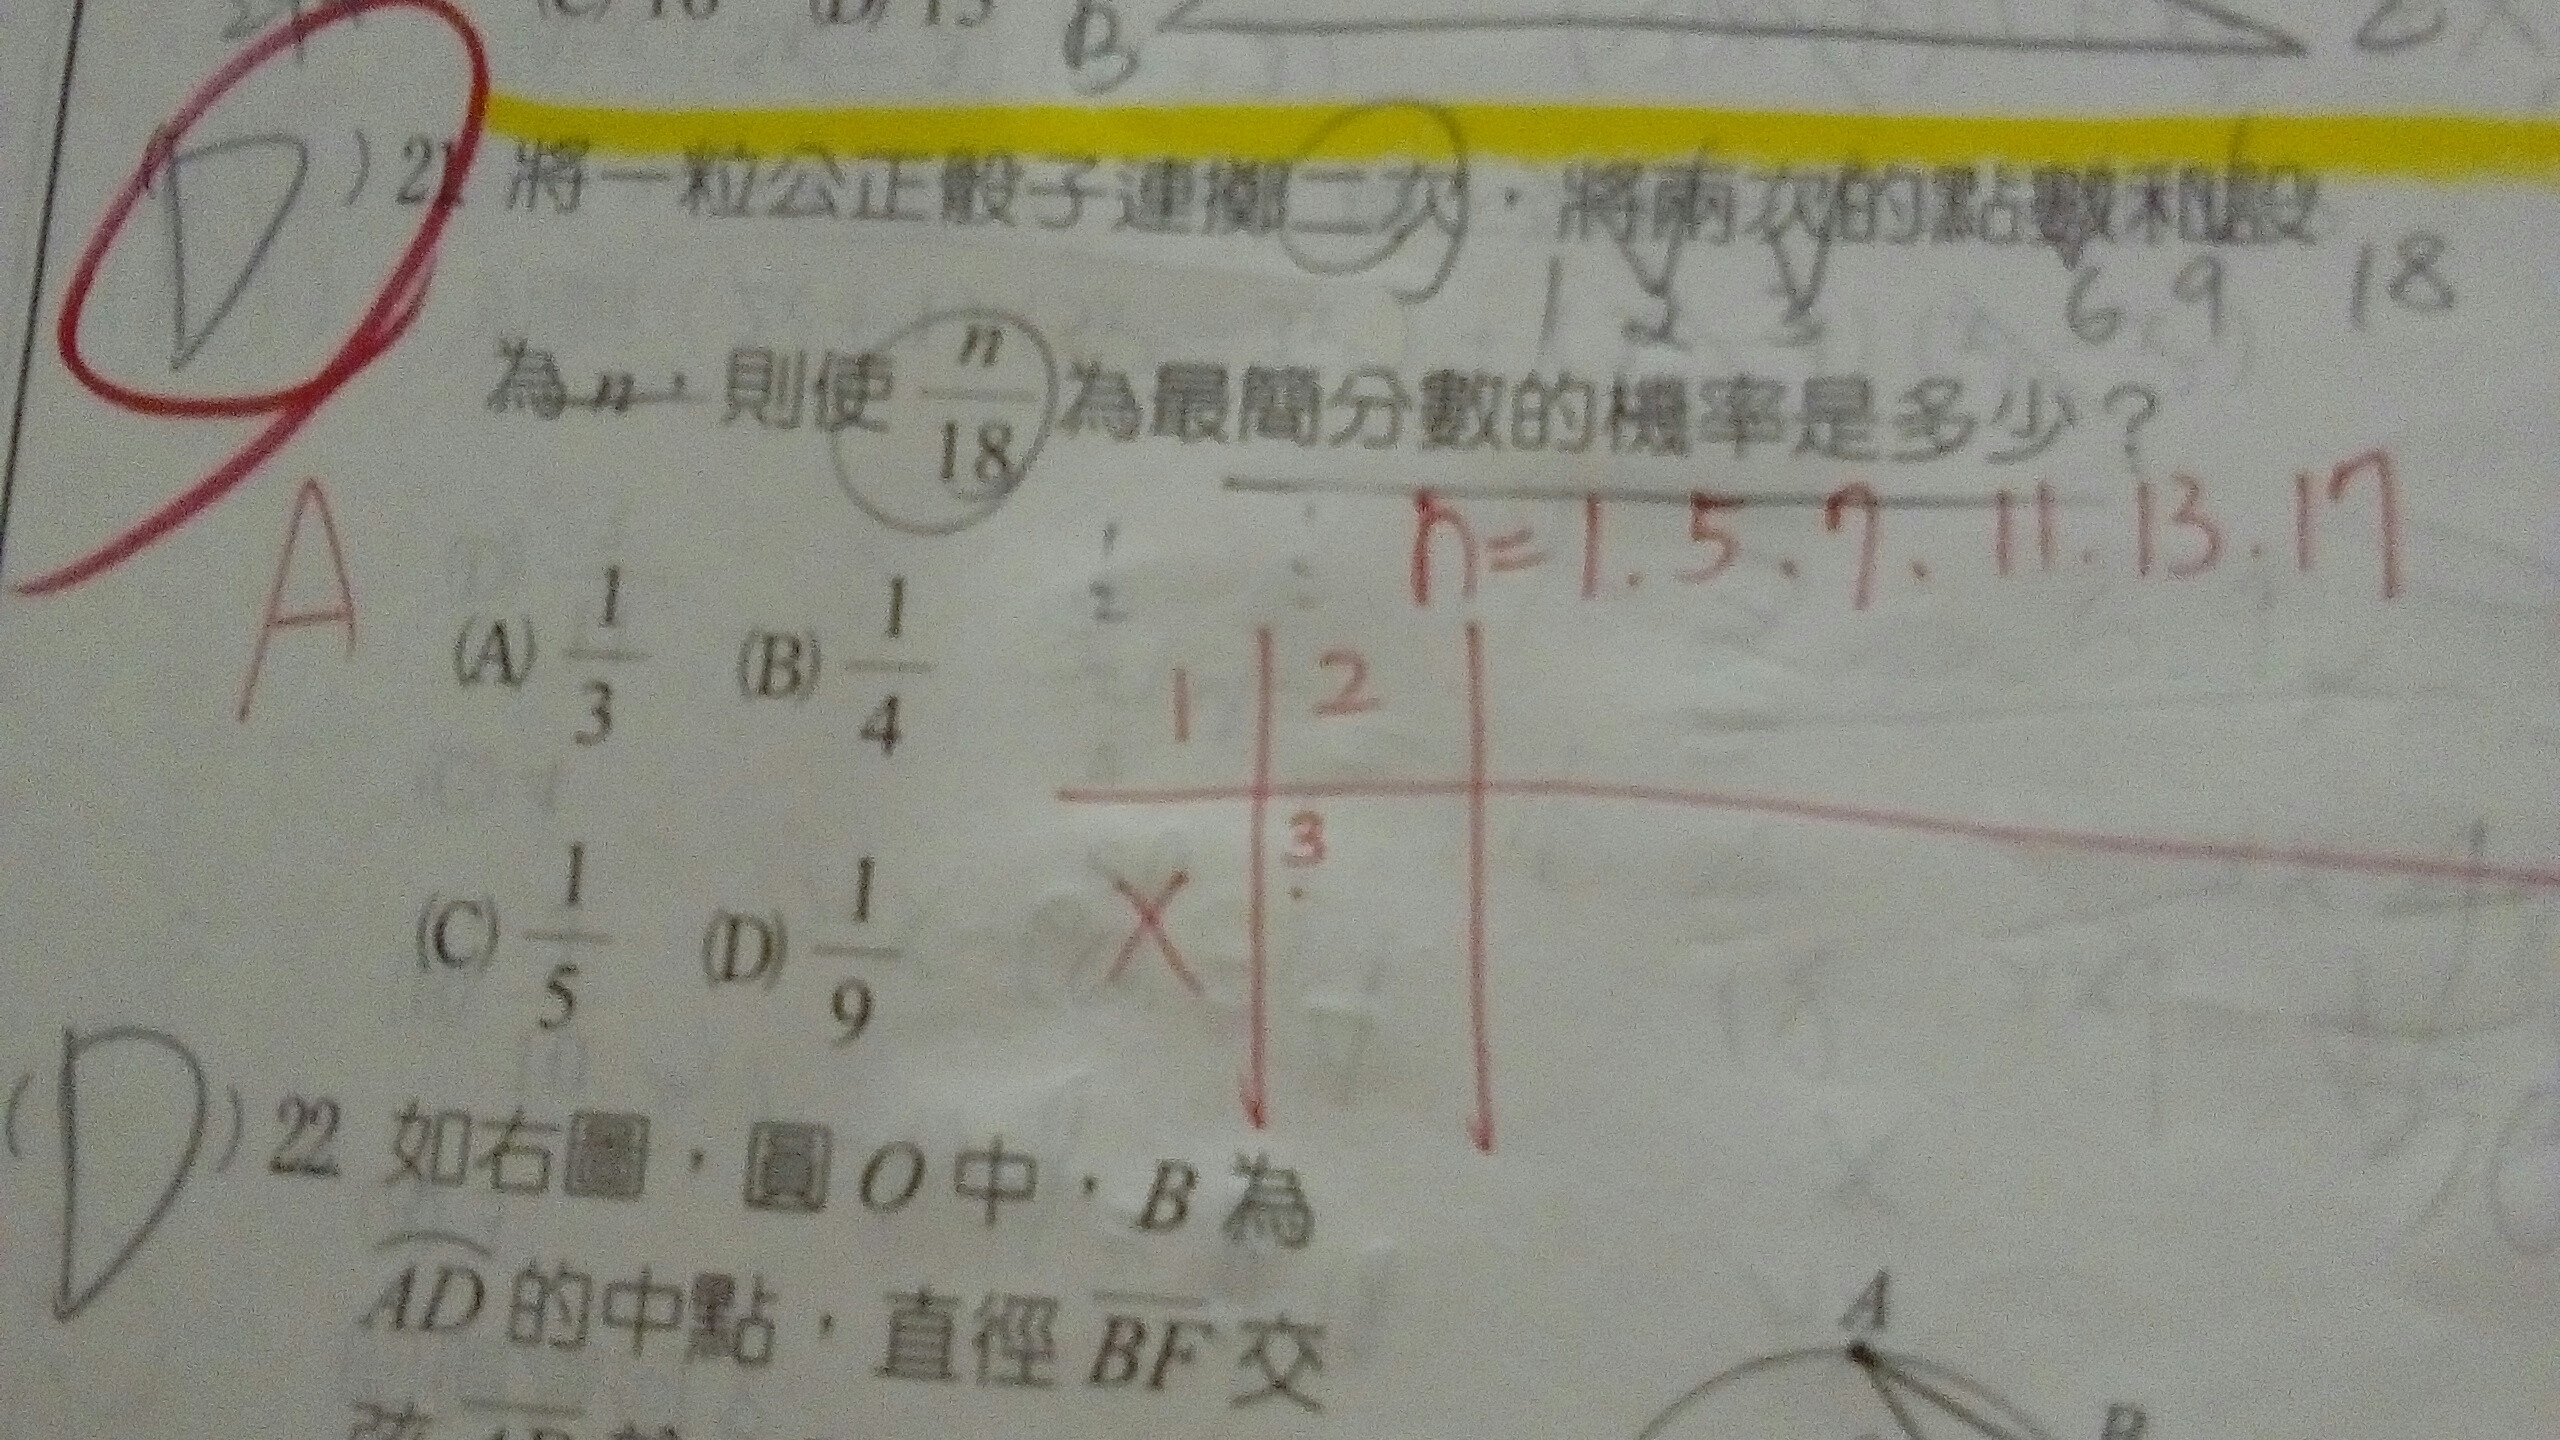 (C) 16 (D) 15 B C
(D) 21 將一粒公正骰子連擲二次，將兩次的點數和設
1 2 3 6 9 18
為 n，則使 n/18 為最簡分數的機率是多少？
n=1.5.7.11.13.17
A (A) 1/3 (B) 1/4
1 2
3
X
(C) 1/5 (D) 1/9
(D) 22 如右圖，圓 O 中，B 為
AD 的中點，直徑 BF 交
A
B